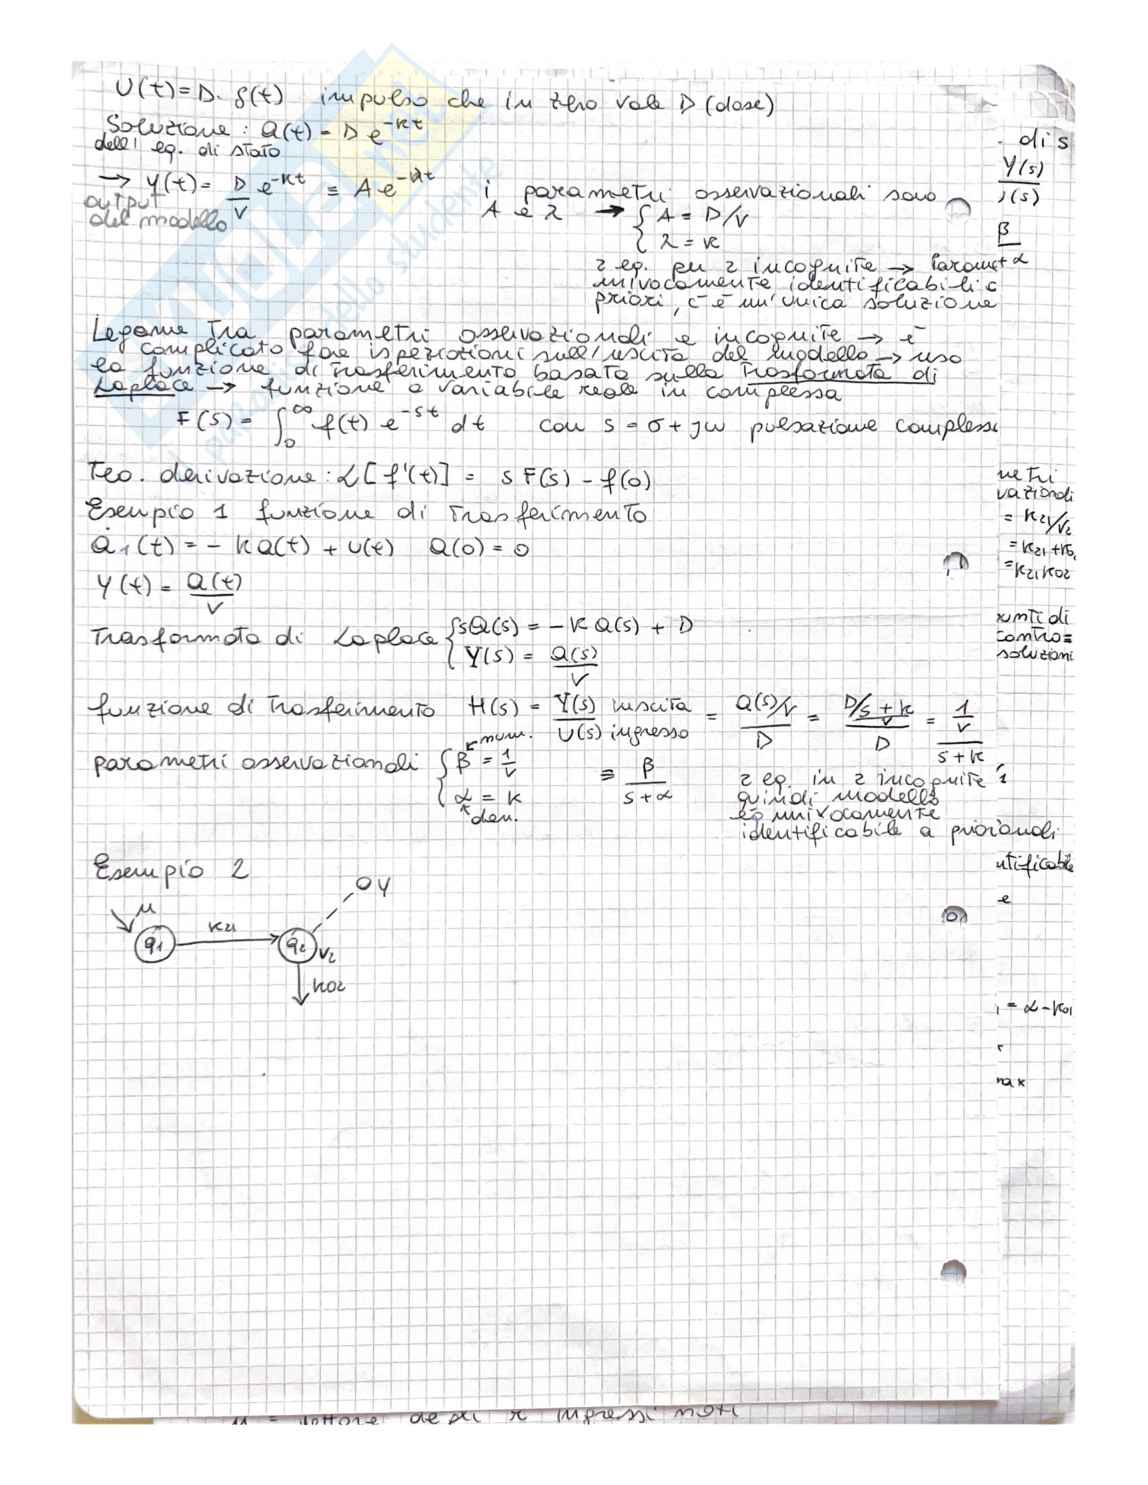 U(t) = D · δ(t) impulso che in zero vale D (dose)
Soluzione : Q(t) = D e^-kt
dell' eq. di stato
→ Y(t) = D/V e^-kt ≡ A e^-λt i parametri osservazionali sono
output A e λ → { A = D/V
del modello λ = k
2 eq. per 2 incognite → Paramet
univocamente identificabili a
priori, c'è un'unica soluzione
Legame tra parametri osservazionali e incognite → è
complicato fare ispezioni sull'uscita del modello → uso
la funzione di trasferimento basata sulla Trasformata di
Laplace → funzione a variabile reale in complessa
F(s) = ∫₀^∞ f(t) e^-st dt con s = σ + jω pulsazione complessa
Teo. derivazione : L[f'(t)] = s F(s) - f(0)
Esempio 1 funzione di Trasferimento
Q̇₁(t) = - kQ(t) + U(t) Q(0) = 0
Y(t) = Q(t)/V
Trasformata di Laplace { sQ(s) = - k Q(s) + D
Y(s) = Q(s)/V
funzione di Trasferimento H(s) = Y(s) uscita / U(s) ingresso = Q(s)/V / D = D/s+k / V / D = 1/V / s+k
num.
parametri osservazionali { β = 1/V ≡ β / s+α
α = k
den.
2 eq. in 2 incognite,
quindi modello
è univocamente
identificabile a priori
Esempio 2
u q1 k21 q2 V2 y
k02
dis
Y(s)
β
+ α
metri
vazionali
= k21/V2
= k21+k0
= k21 k02
unti di
contro=
soluzioni
1
onali
ntificabile
e
1 = α - k01
r
max
u = vettore degli r ingressi noti